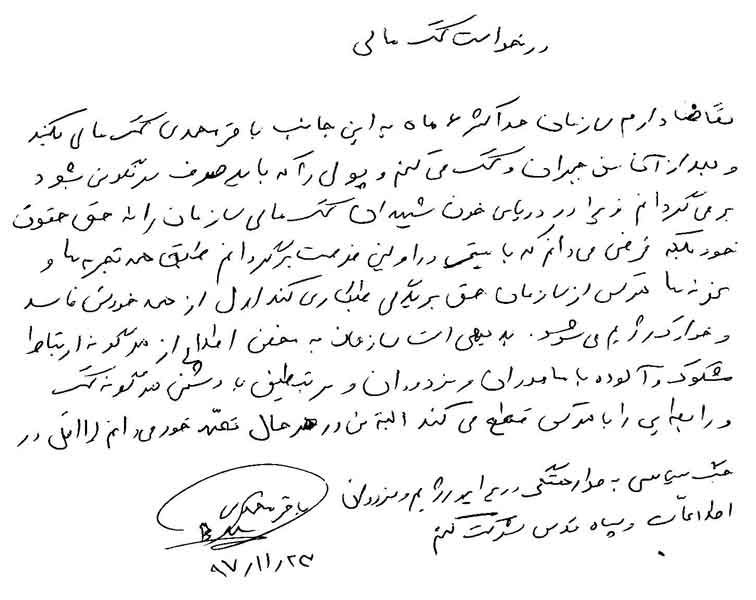 درخواست کمک مالی
تقاضا دارم سازمان حداکثر ۶ ماه به این جانب باقر محمدی کمک مالی بکند
و بعد از آن من جبران و کمک می‌کنم و پولی را که باید صرف سرنگونی شود
بر می‌گردانم زیرا در دریای خون شهیدان کمک مالی سازمان را نه حق حقوق
خود بلکه قرضی می‌دانم که بایستی در اولین فرصت برگردانم طبق همه تجربه‌ها و
نمونه‌ها هرکس از سازمان حق بریدگی طلبکاری کند اول از همه خودش فاسد
و خوراک رژیم می‌شود. بدیهی است سازمان به محض اطلاع از هرگونه ارتباط
مشکوک و آلوده با ماموران و مزدوران و مرتبطین با دشمن هرگونه کمک
و رابطه‌ایی را با هرکس قطع می‌کند البته من در هر حال تعهد خود می‌دانم لااقل در
جنب سیاسی به موارد علیه رژیم و مزدوران
اطلاعات و سپاه قدس شرکت کنم
باقر محمدی
۹۷/۱۱/۲۳